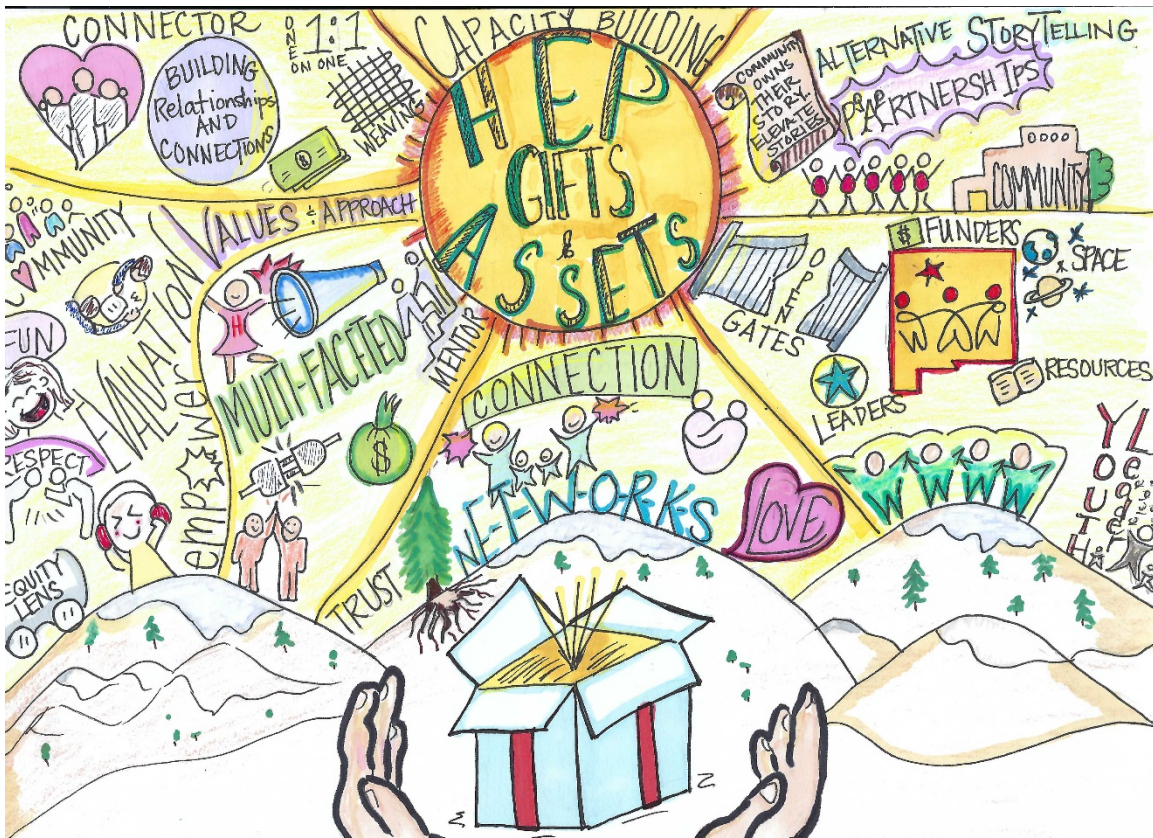 CONNECTOR
BUILDING
Relationships
AND
CONNECTIONS
ONE 1:1
ON ONE
WEAVING
$
CAPACITY BUILDING
HEP
GIFTS
&
ASSETS
COMMUNITY
OWNS
THEIR
STORY
ELEVATE
STORIES
ALTERNATIVE STORYTELLING
PARTNERSHIPS
COMMUNITY
VALUES & APPROACH
COMMUNITY
EVALUATION
FUN
RESPECT
EQUITY
LENS
empower
H
MULTI-FACETED
MENTOR
$
TRUST
CONNECTION
N-E-T-W-O-R-K-S
LOVE
OPEN
GATES
$ FUNDERS
SPACE
W W W
LEADERS
RESOURCES
W W W W
YOUTH